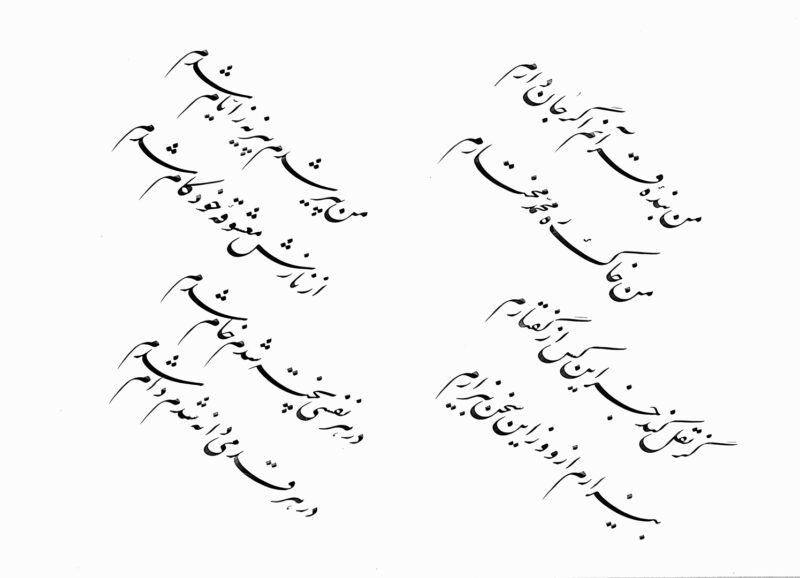 من بندهٔ قرآنم اگر جان دارم
من خاک ره محمّد مختارم
گر نقل کند جز این کس از گفتارم
بیزارم ازو وز این سخن بیزارم
من پیر شدم پیر نه ز ایّام شدم
از نازش معشوقهٔ خودکام شدم
در هر نفسی پخته شدم خام شدم
در هر قدمی دانه شدم دام شدم